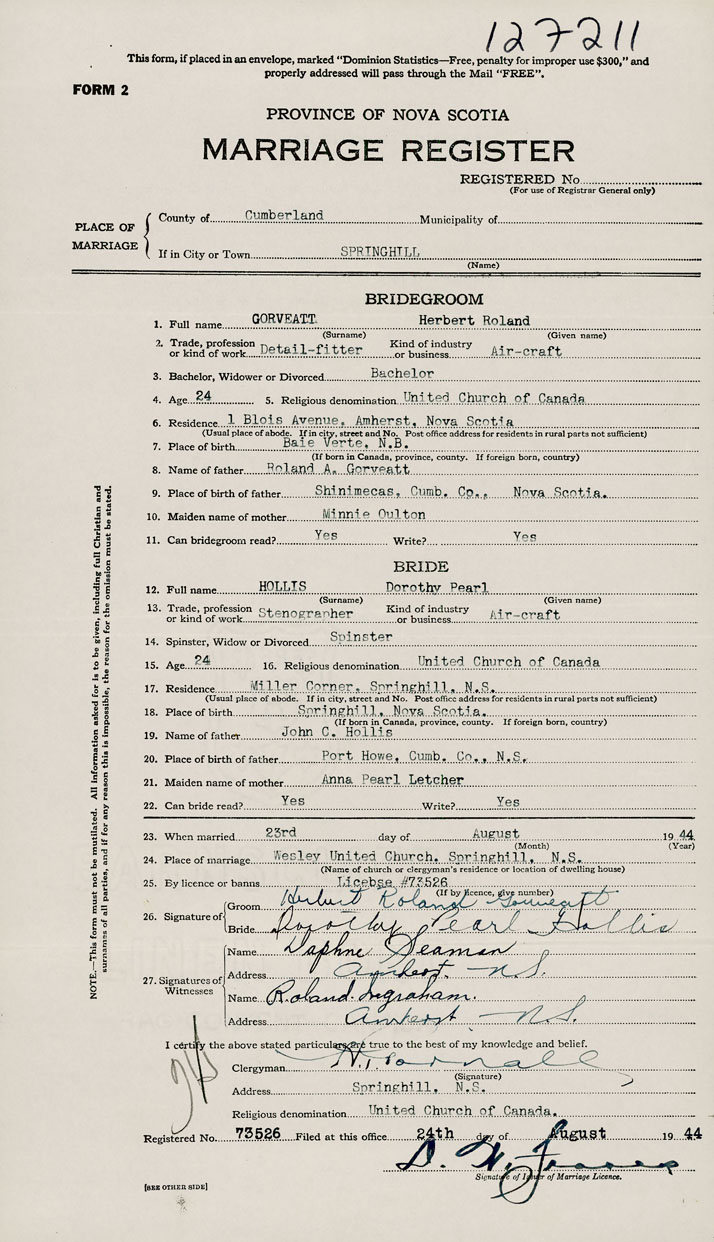 127211
This form, if placed in an envelope, marked "Dominion Statistics—Free, penalty for improper use $300," and
properly addressed will pass through the Mail "FREE".
FORM 2
PROVINCE OF NOVA SCOTIA
MARRIAGE REGISTER
REGISTERED No.
(For use of Registrar General only)
PLACE OF MARRIAGE
County of Cumberland Municipality of
If in City or Town SPRINGHILL
(Name)
BRIDEGROOM
1. Full name GORVEATT Herbert Roland
(Surname) (Given name)
2. Trade, profession or kind of work Detail-fitter Kind of industry or business Air-craft
3. Bachelor, Widower or Divorced Bachelor
4. Age 24 5. Religious denomination United Church of Canada
6. Residence 1 Blois Avenue, Amherst, Nova Scotia
(Usual place of abode. If in city, street and No. Post office address for residents in rural parts not sufficient)
7. Place of birth Baie Verte, N.B.
(If born in Canada, province, county. If foreign born, country)
8. Name of father Roland A. Gorveatt
9. Place of birth of father Shinimecas, Cumb. Co., Nova Scotia.
10. Maiden name of mother Minnie Oulton
11. Can bridegroom read? Yes Write? Yes
BRIDE
12. Full name HOLLIS Dorothy Pearl
(Surname) (Given name)
13. Trade, profession or kind of work Stenographer Kind of industry or business Air-craft
14. Spinster, Widow or Divorced Spinster
15. Age 24 16. Religious denomination United Church of Canada
17. Residence Miller Corner, Springhill, N.S.
(Usual place of abode. If in city, street and No. Post office address for residents in rural parts not sufficient)
18. Place of birth Springhill, Nova Scotia.
(If born in Canada, province, county. If foreign born, country)
19. Name of father John C. Hollis
20. Place of birth of father Port Howe, Cumb. Co., N.S.
21. Maiden name of mother Anna Pearl Letcher
22. Can bride read? Yes Write? Yes
23. When married 23rd day of August 19 44
(Month) (Year)
24. Place of marriage Wesley United Church, Springhill, N.S.
(Name of church or clergyman's residence or location of dwelling house)
25. By licence or banns License #73526
(If by licence, give number)
26. Signature of
Groom Herbert Roland Gorveatt
Bride Dorothy Pearl Hollis
27. Signatures of Witnesses
Name Daphne Seaman
Address Amherst N.S.
Name Roland Ingraham.
Address Amherst N.S.
I certify the above stated particulars are true to the best of my knowledge and belief.
Clergyman
(Signature)
Address Springhill, N.S.
Religious denomination United Church of Canada.
Registered No. 73526 Filed at this office 24th day of August 19 44
D. W.
Signature of Issuer of Marriage Licence.
[SEE OTHER SIDE]
NOTE.—This form must not be mutilated. All information asked for is to be given, including full Christian and
surnames of all parties, and if for any reason this is impossible, the reason for the omission must be stated.